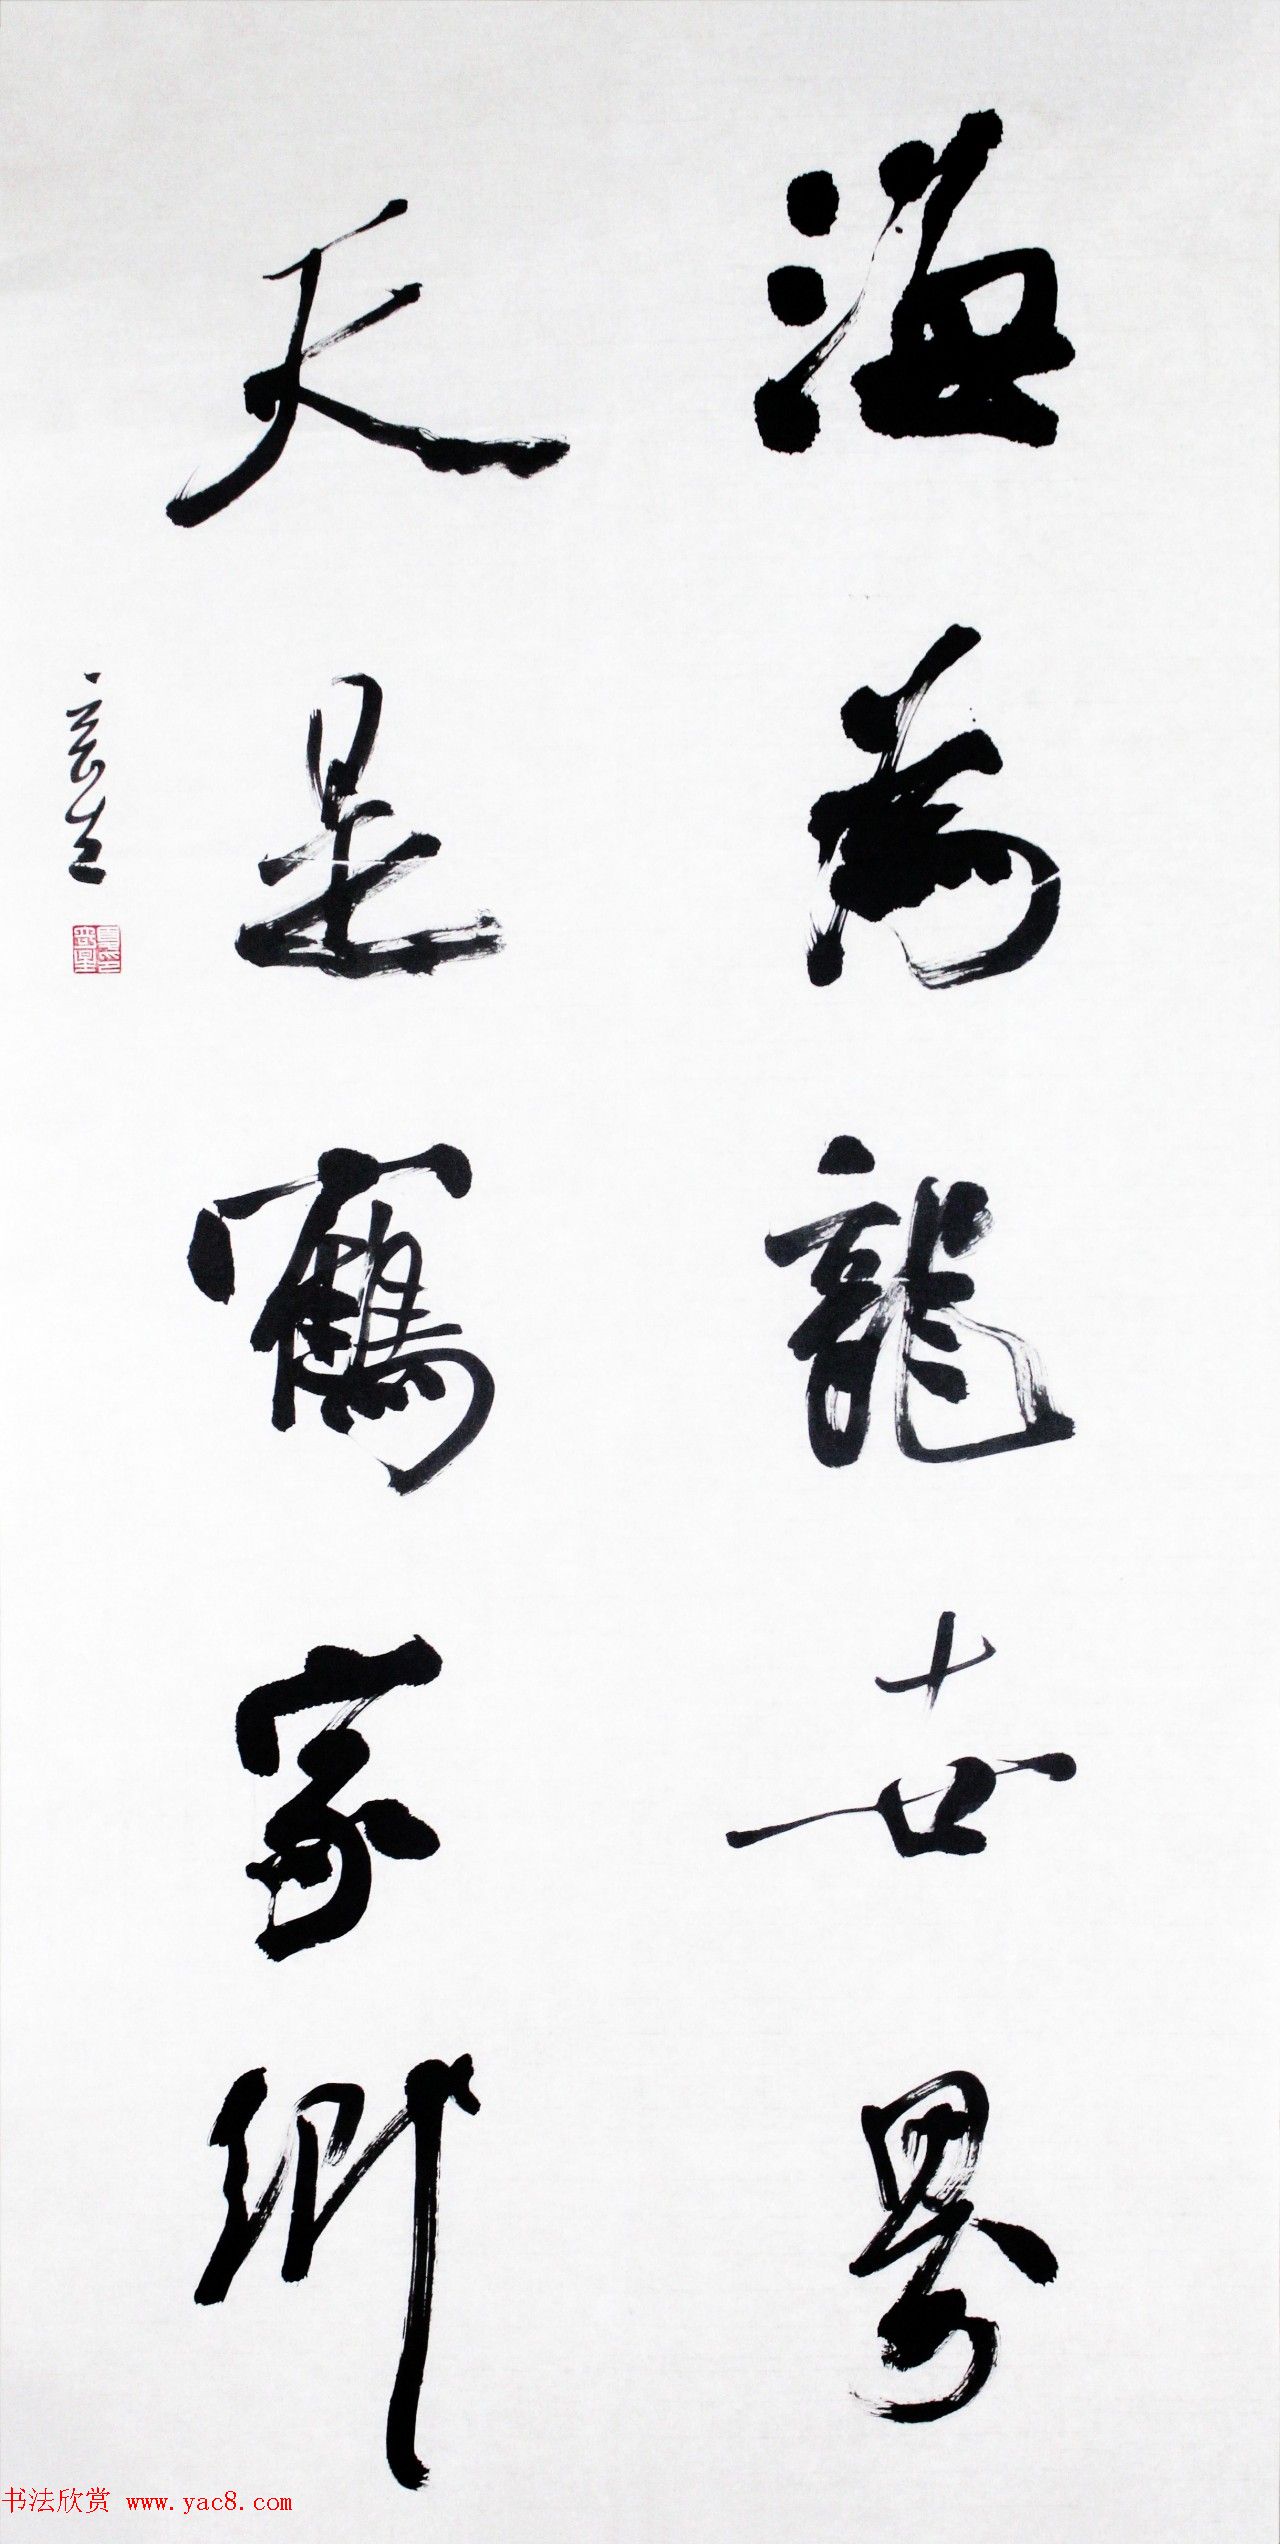 海为龍世界
天是鶴家鄉
书法欣赏 www.yac8.com